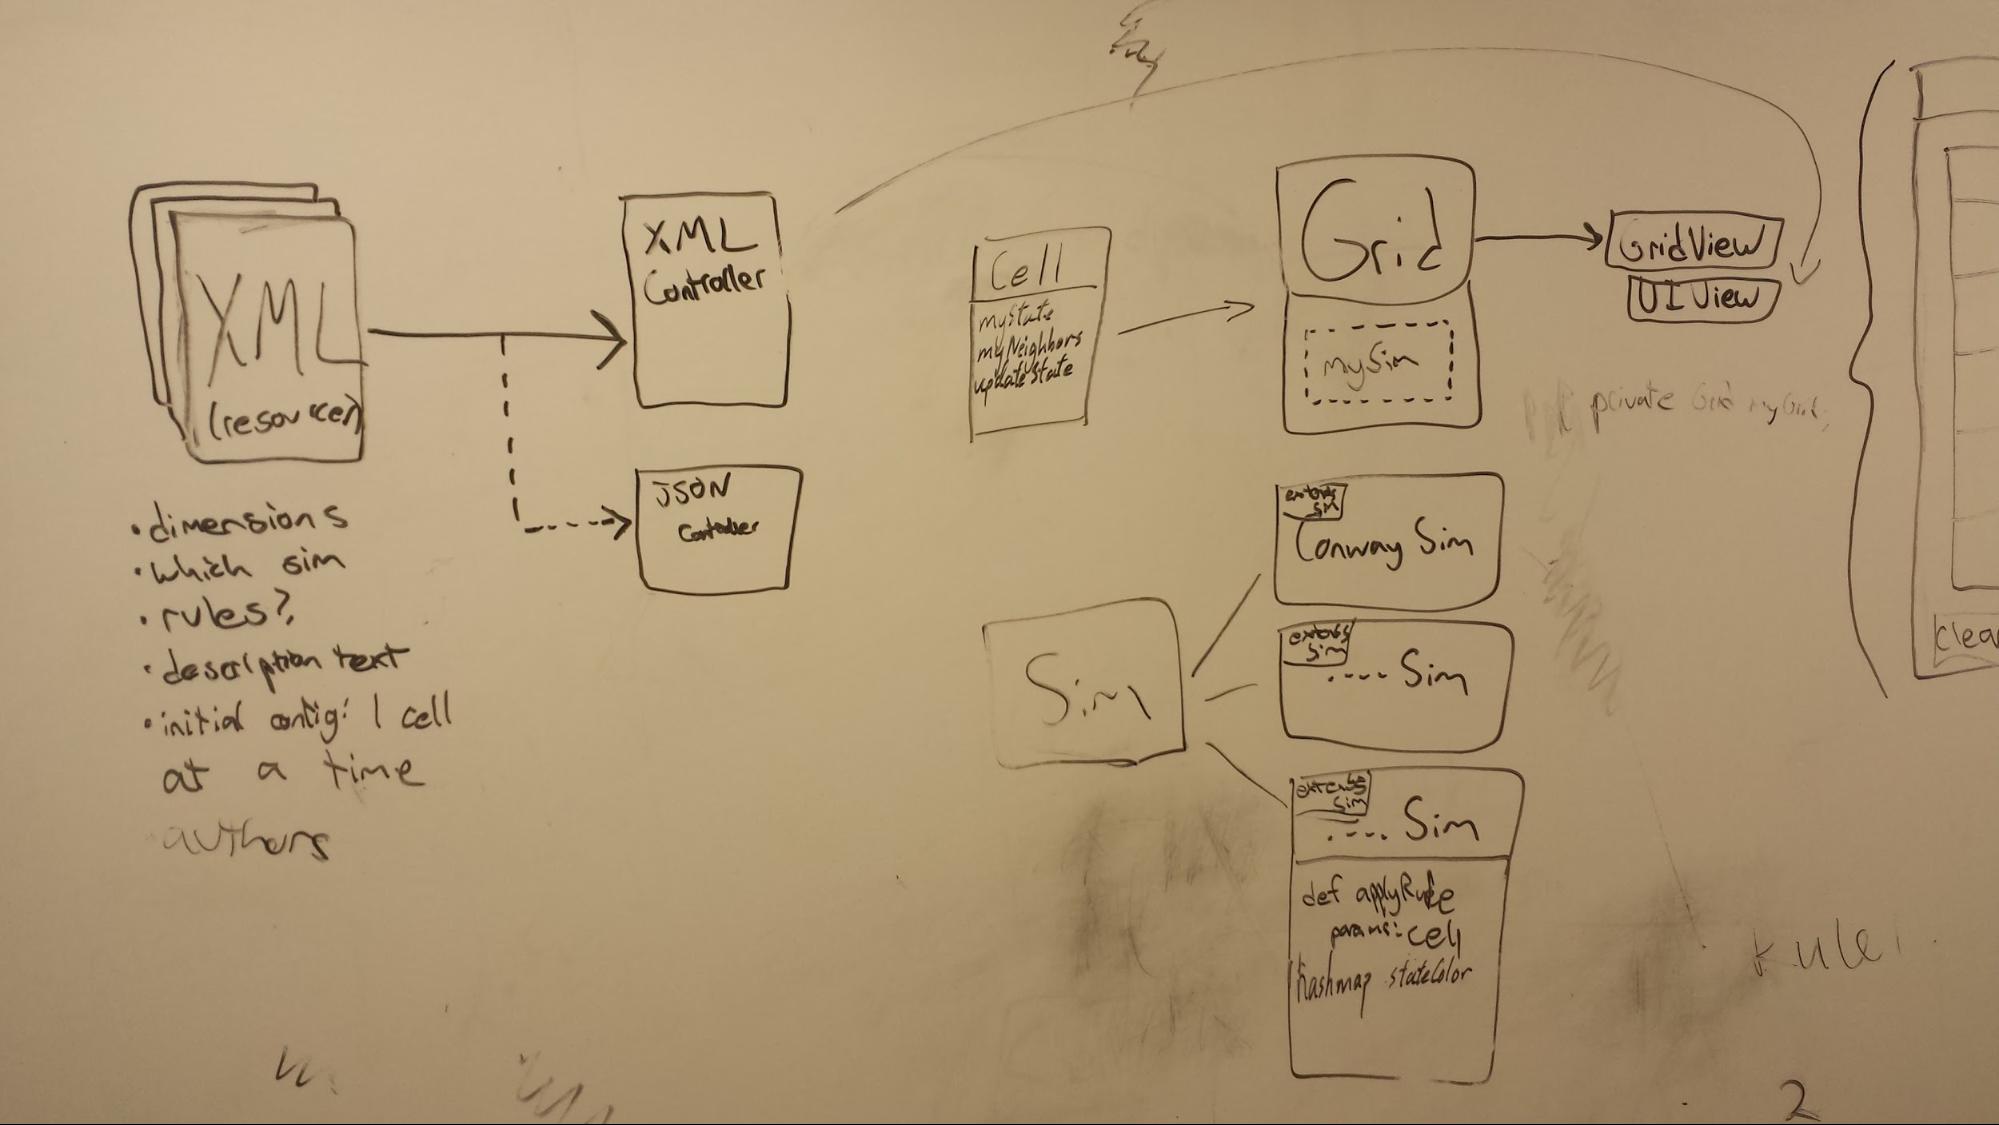 XML
(resources)
• dimensions
• which sim
• rules?
• description text
• initial config: 1 cell
at a time
authors
XML
Controller
JSON
Controller
Cell
myState
myNeighbors
updateState
Grid
mySim
GridView
UIView
private Grid myGrid;
Sim
extends
Sim
Conway Sim
extends
Sim
.... Sim
extends
Sim
.... Sim
def applyRule
params: cell
hashmap stateColor
rule
2